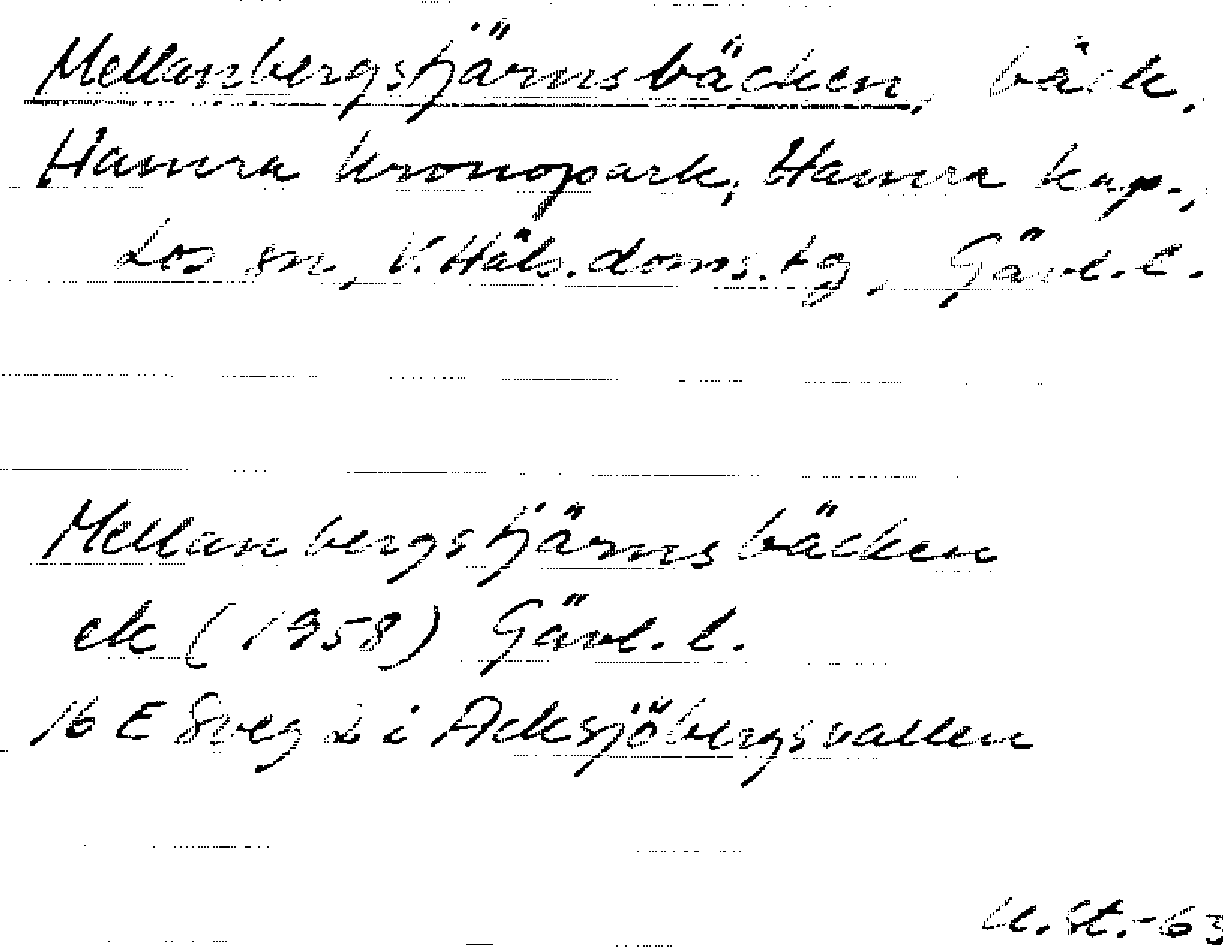 Mellanbergstjärnsbäcken, bäck,
Hamra kronopark, Hamra kap.,
Los sn, V. Häls. doms. tg, Gävl. l.
Mellanbergstjärnsbäcken
ek (1958) Gävl. l.
16 E Sveg L i Acksjöbergsvallen
U. St. -63